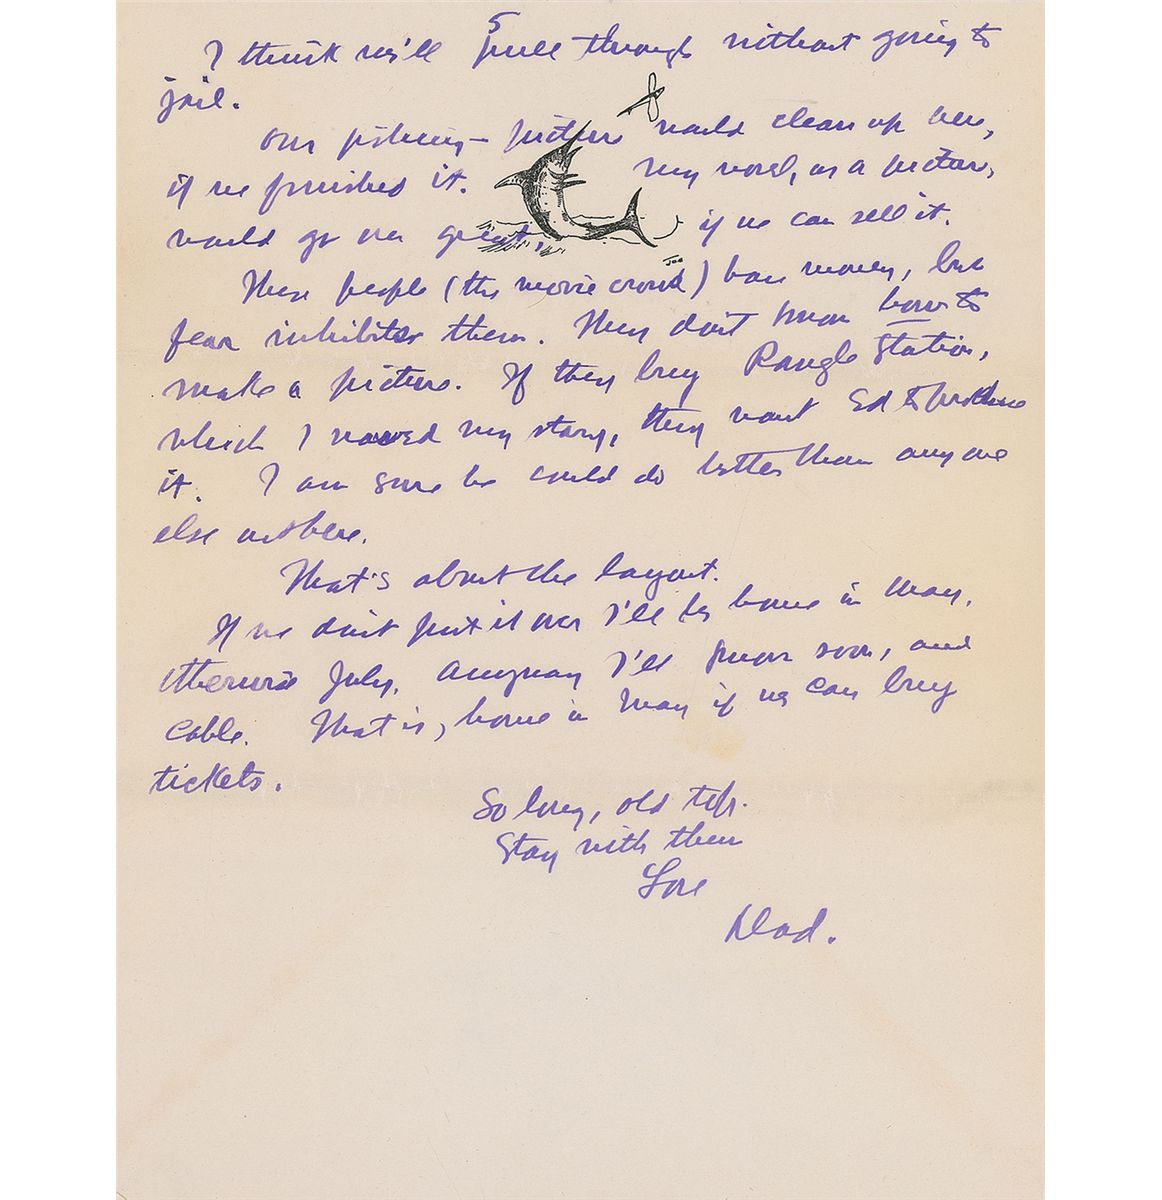 5
I think we'll pull through without going to
jail.
Our fishing-picture would clean up here,
if we finished it. My novel, as a picture,
would go over great, if we can sell it.
Joe
These people (the movie crowd) have money, but
fear inhibits them. They don't know how to
make a picture. If they buy Rangle Station,
which I named my story, they want Ed to produce
it. I am sure he could do better than anyone
else out here.
That's about the layout.
If we don't put it over I'll be home in May,
otherwise July. Anyway I'll know soon, and
cable. That is, home in May if we can buy
tickets.
So long, old top.
Stay with them
Love
Dad.